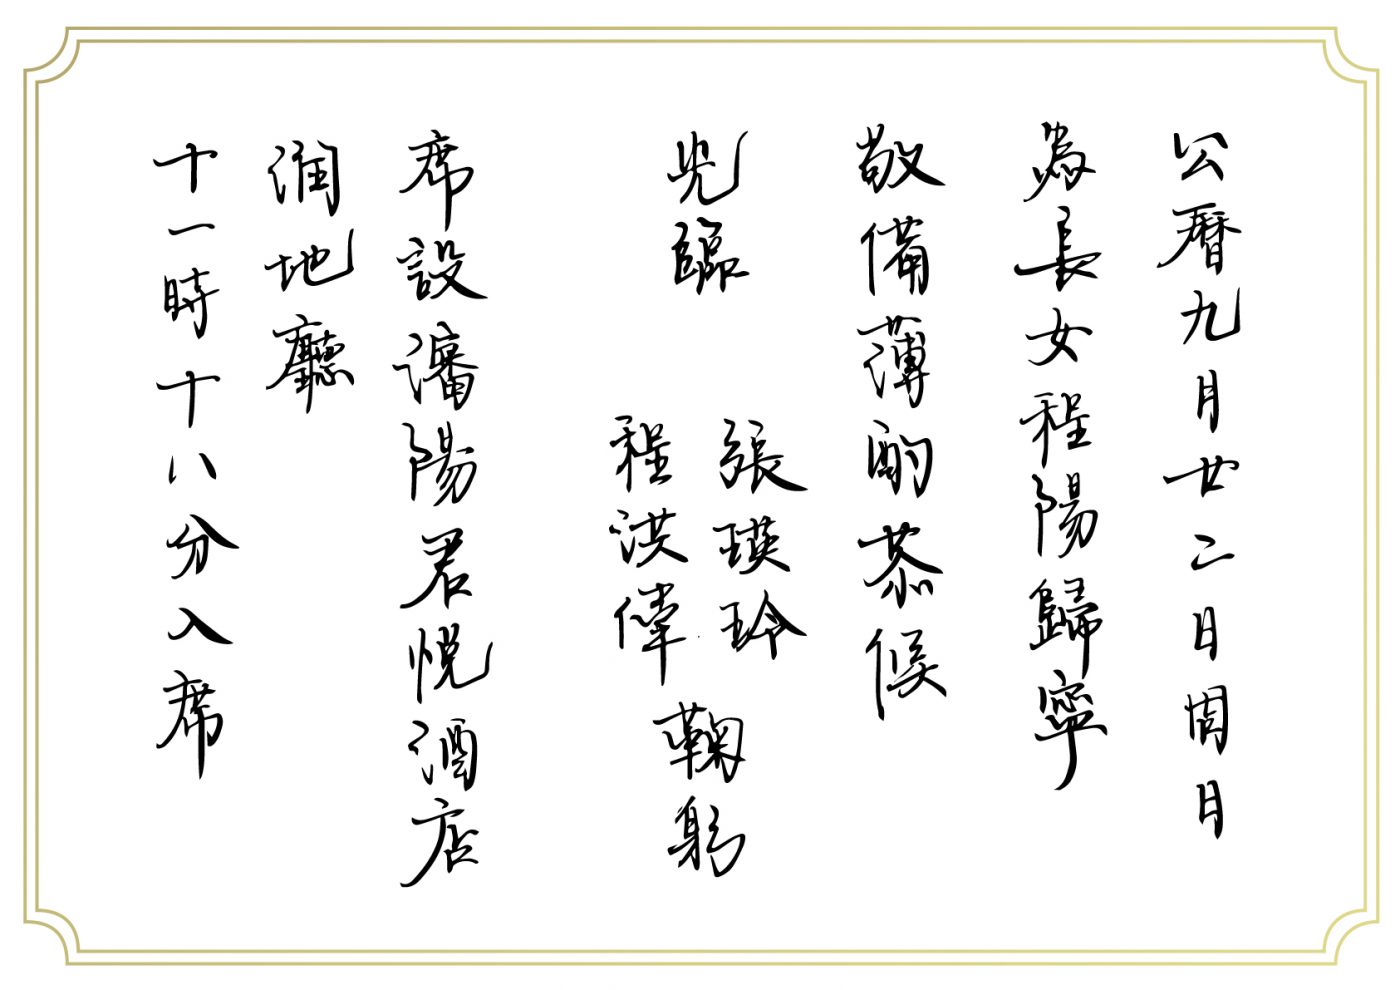 公曆九月廿二日周日
為長女程陽歸寧
敬備薄酌恭候
光臨
張瑛玲
程洪偉
鞠躬
席設瀋陽君悅酒店
潤地廳
十一時十八分入席